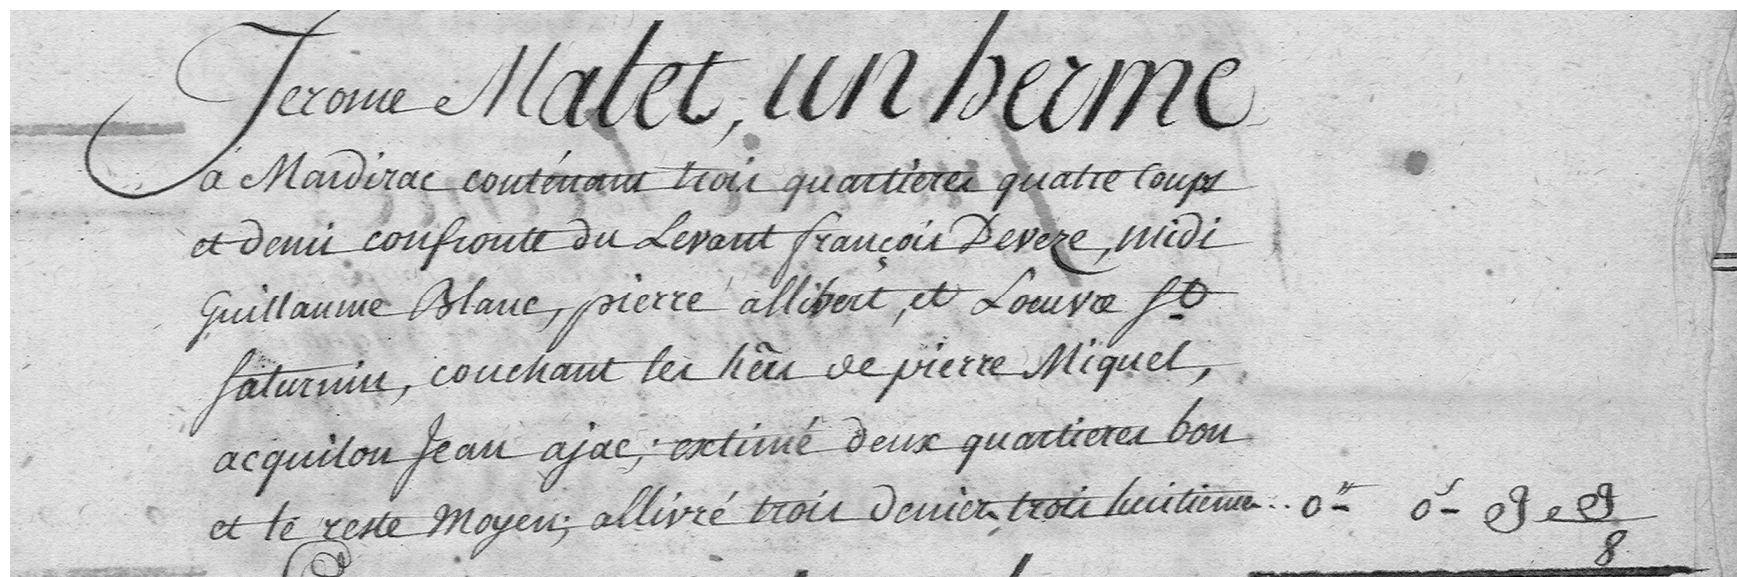 Jerome Matet, un herme
a Mardirac contenant trois quartieres quatre Coups
et demi confronte du Levant françois Devere, midi
Guillaume Blanc, pierre allibert, et Loeuvre St
saturnin, couchant les hērs de pierre Miquel,
acquilon Jean ajac; extimé deux quartieres bon
et le reste Moyen; allivré trois deniers trois huitieme.. 0 ₶ 0 s 3 d 3/8